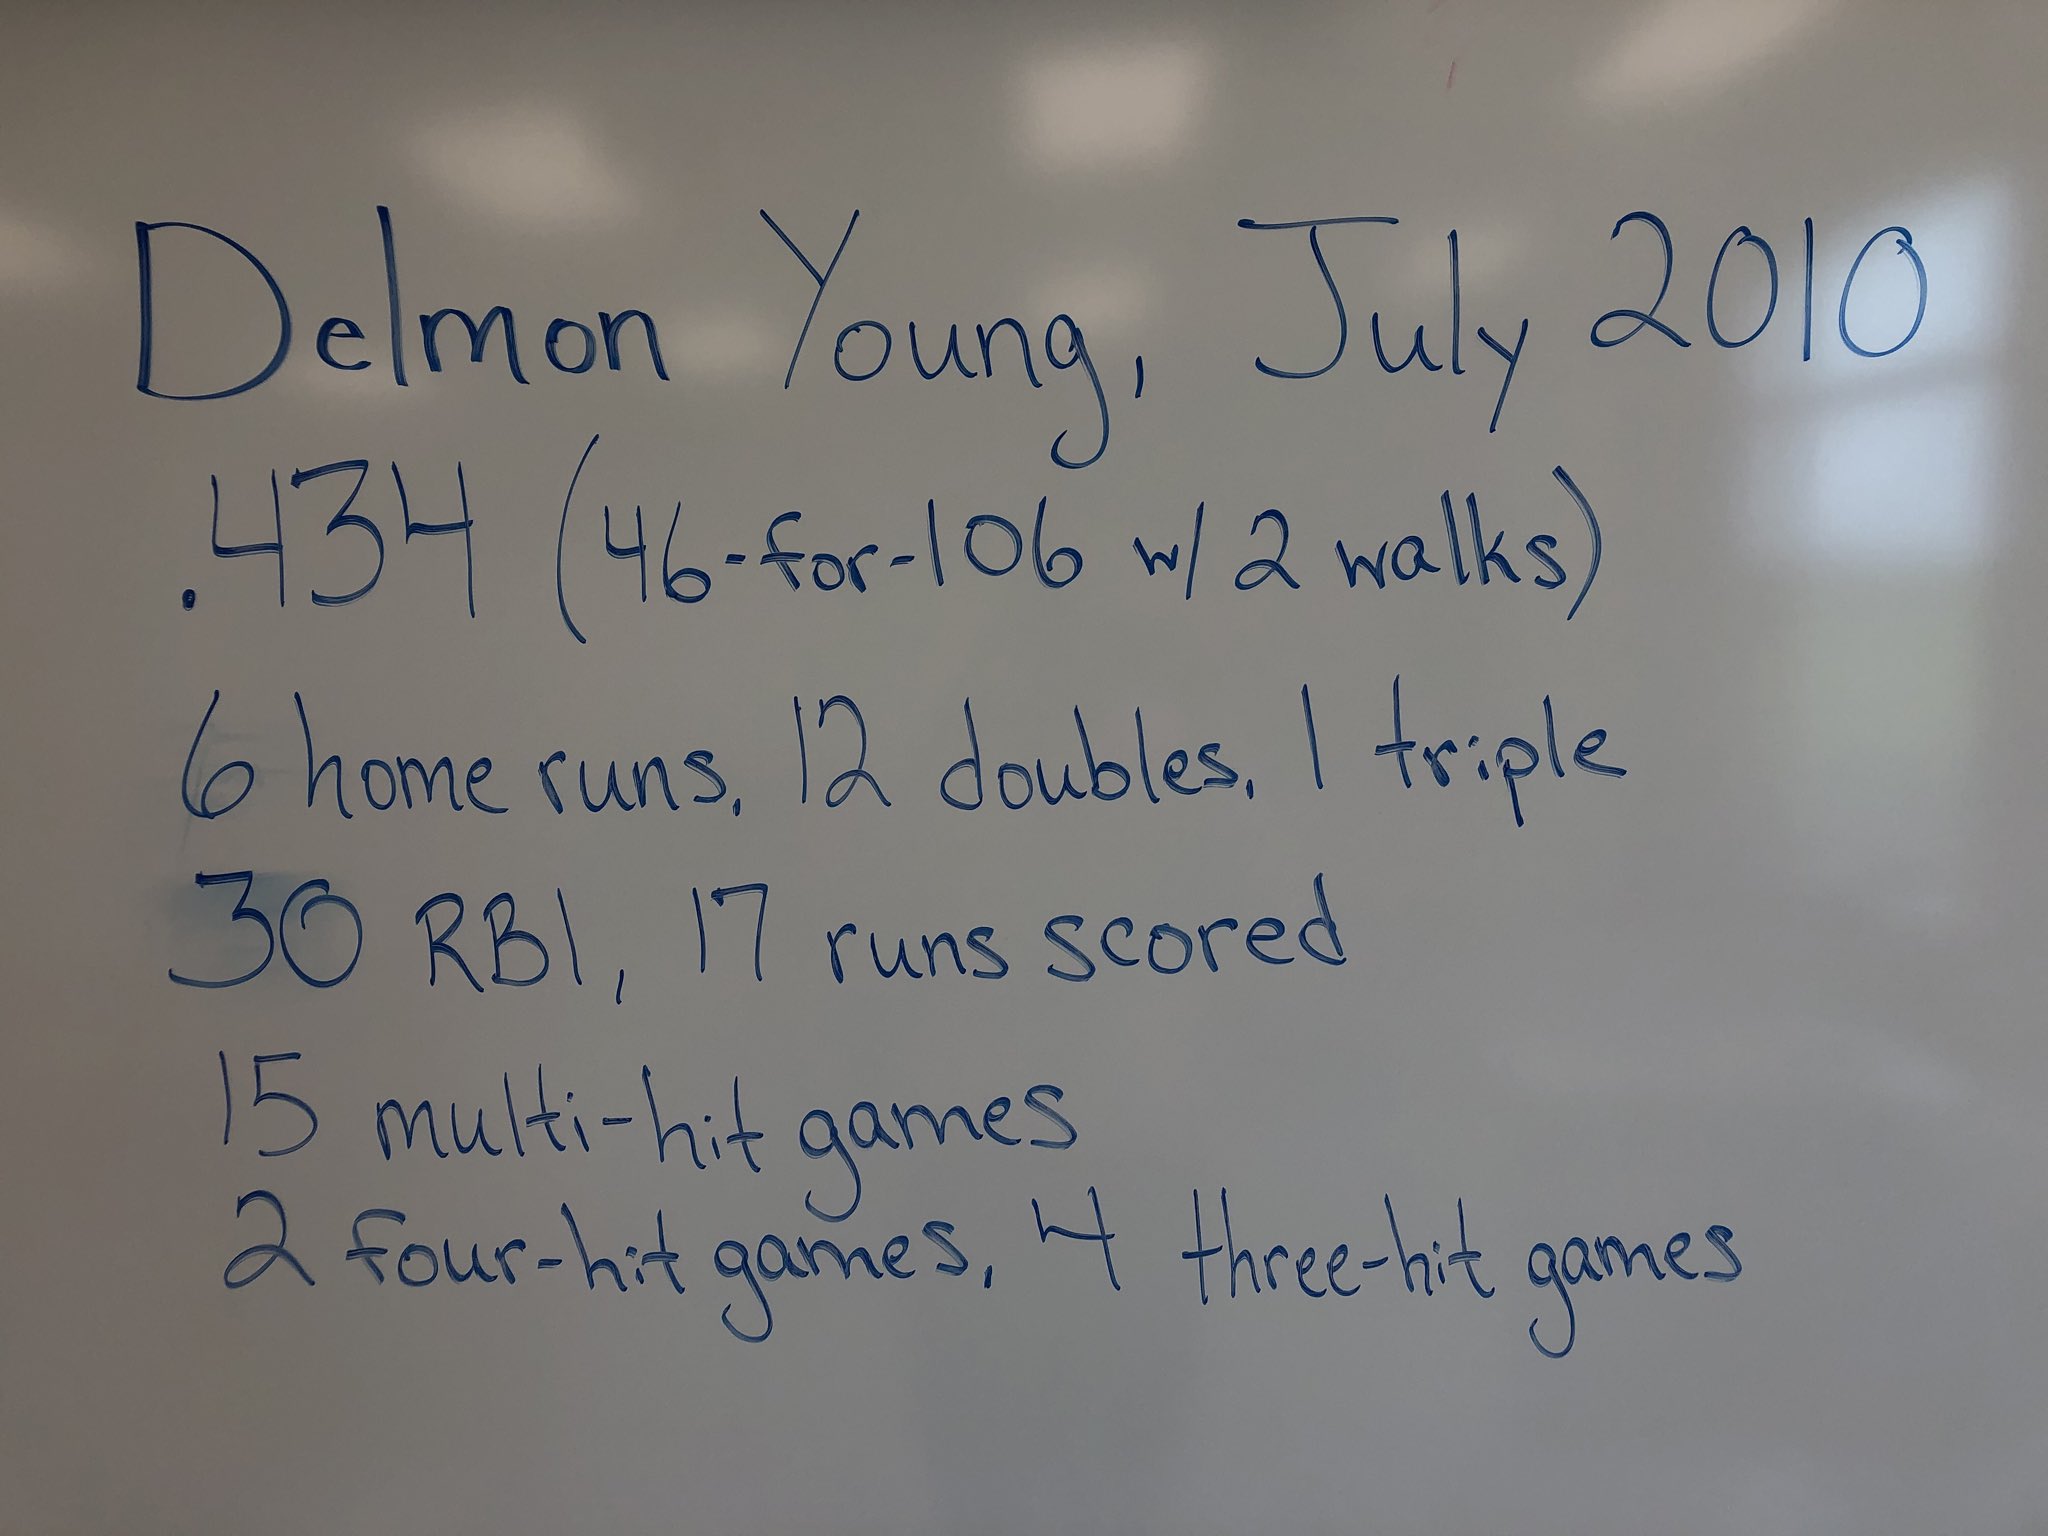 Delmon Young, July 2010
.434 (46-for-106 w/ 2 walks)
6 home runs, 12 doubles, 1 triple
30 RBI, 17 runs scored
15 multi-hit games
2 four-hit games, 4 three-hit games